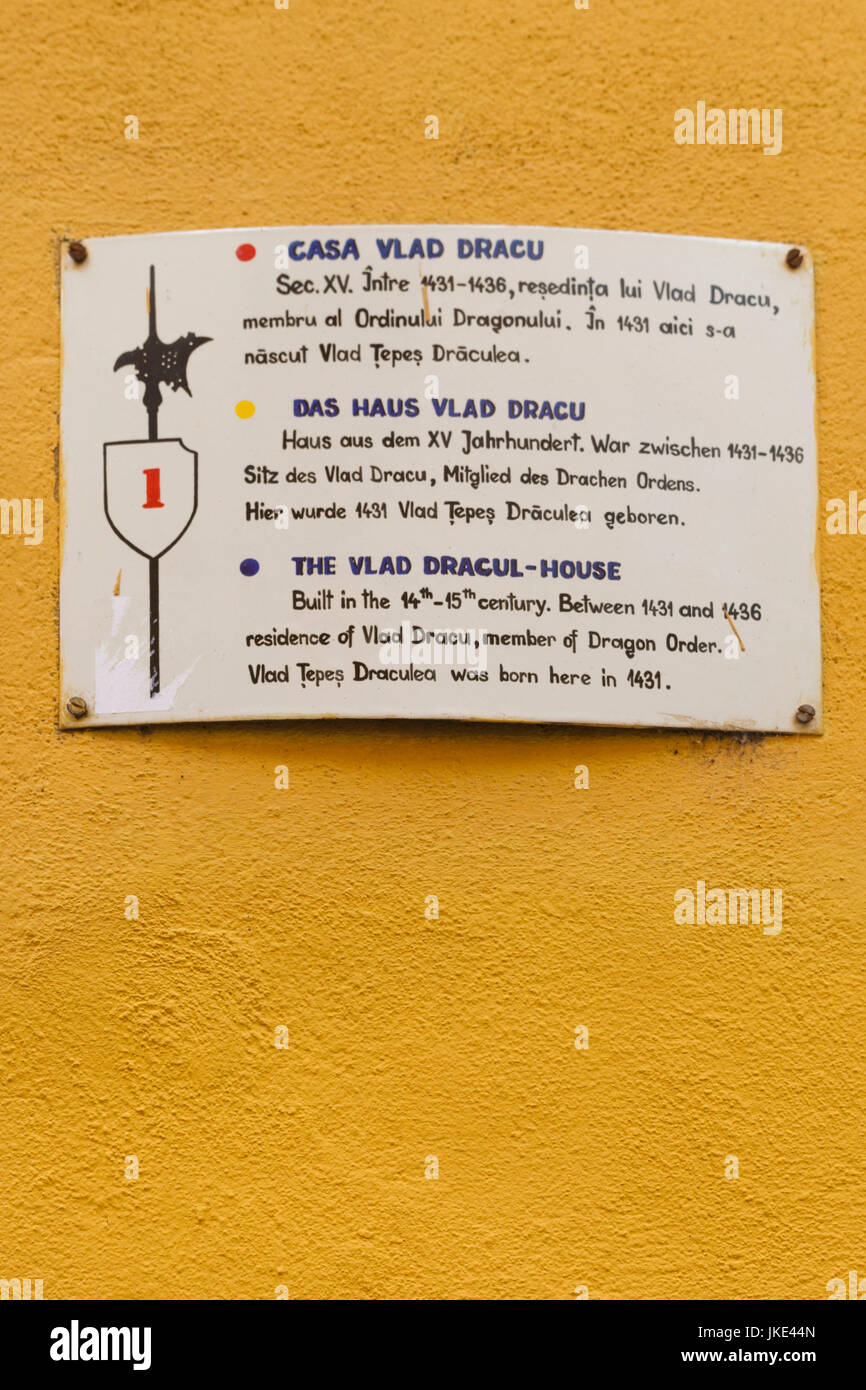 CASA VLAD DRACU
Sec. XV. Între 1431-1436, reşedinţa lui Vlad Dracu,
membru al Ordinului Dragonului. În 1431 aici s-a
născut Vlad Ţepeş Drăculea.
DAS HAUS VLAD DRACU
Haus aus dem XV Jahrhundert. War zwischen 1431-1436
Sitz des Vlad Dracu, Mitglied des Drachen Ordens.
Hier wurde 1431 Vlad Ţepeş Drăculea geboren.
1
THE VLAD DRACUL-HOUSE
Built in the 14th-15th century. Between 1431 and 1436
residence of Vlad Dracu, member of Dragon Order.
Vlad Ţepeş Draculea was born here in 1431.
alamy
alamy
alamy
alamy
a alamy stock photo
Image ID: JKE44N
www.alamy.com